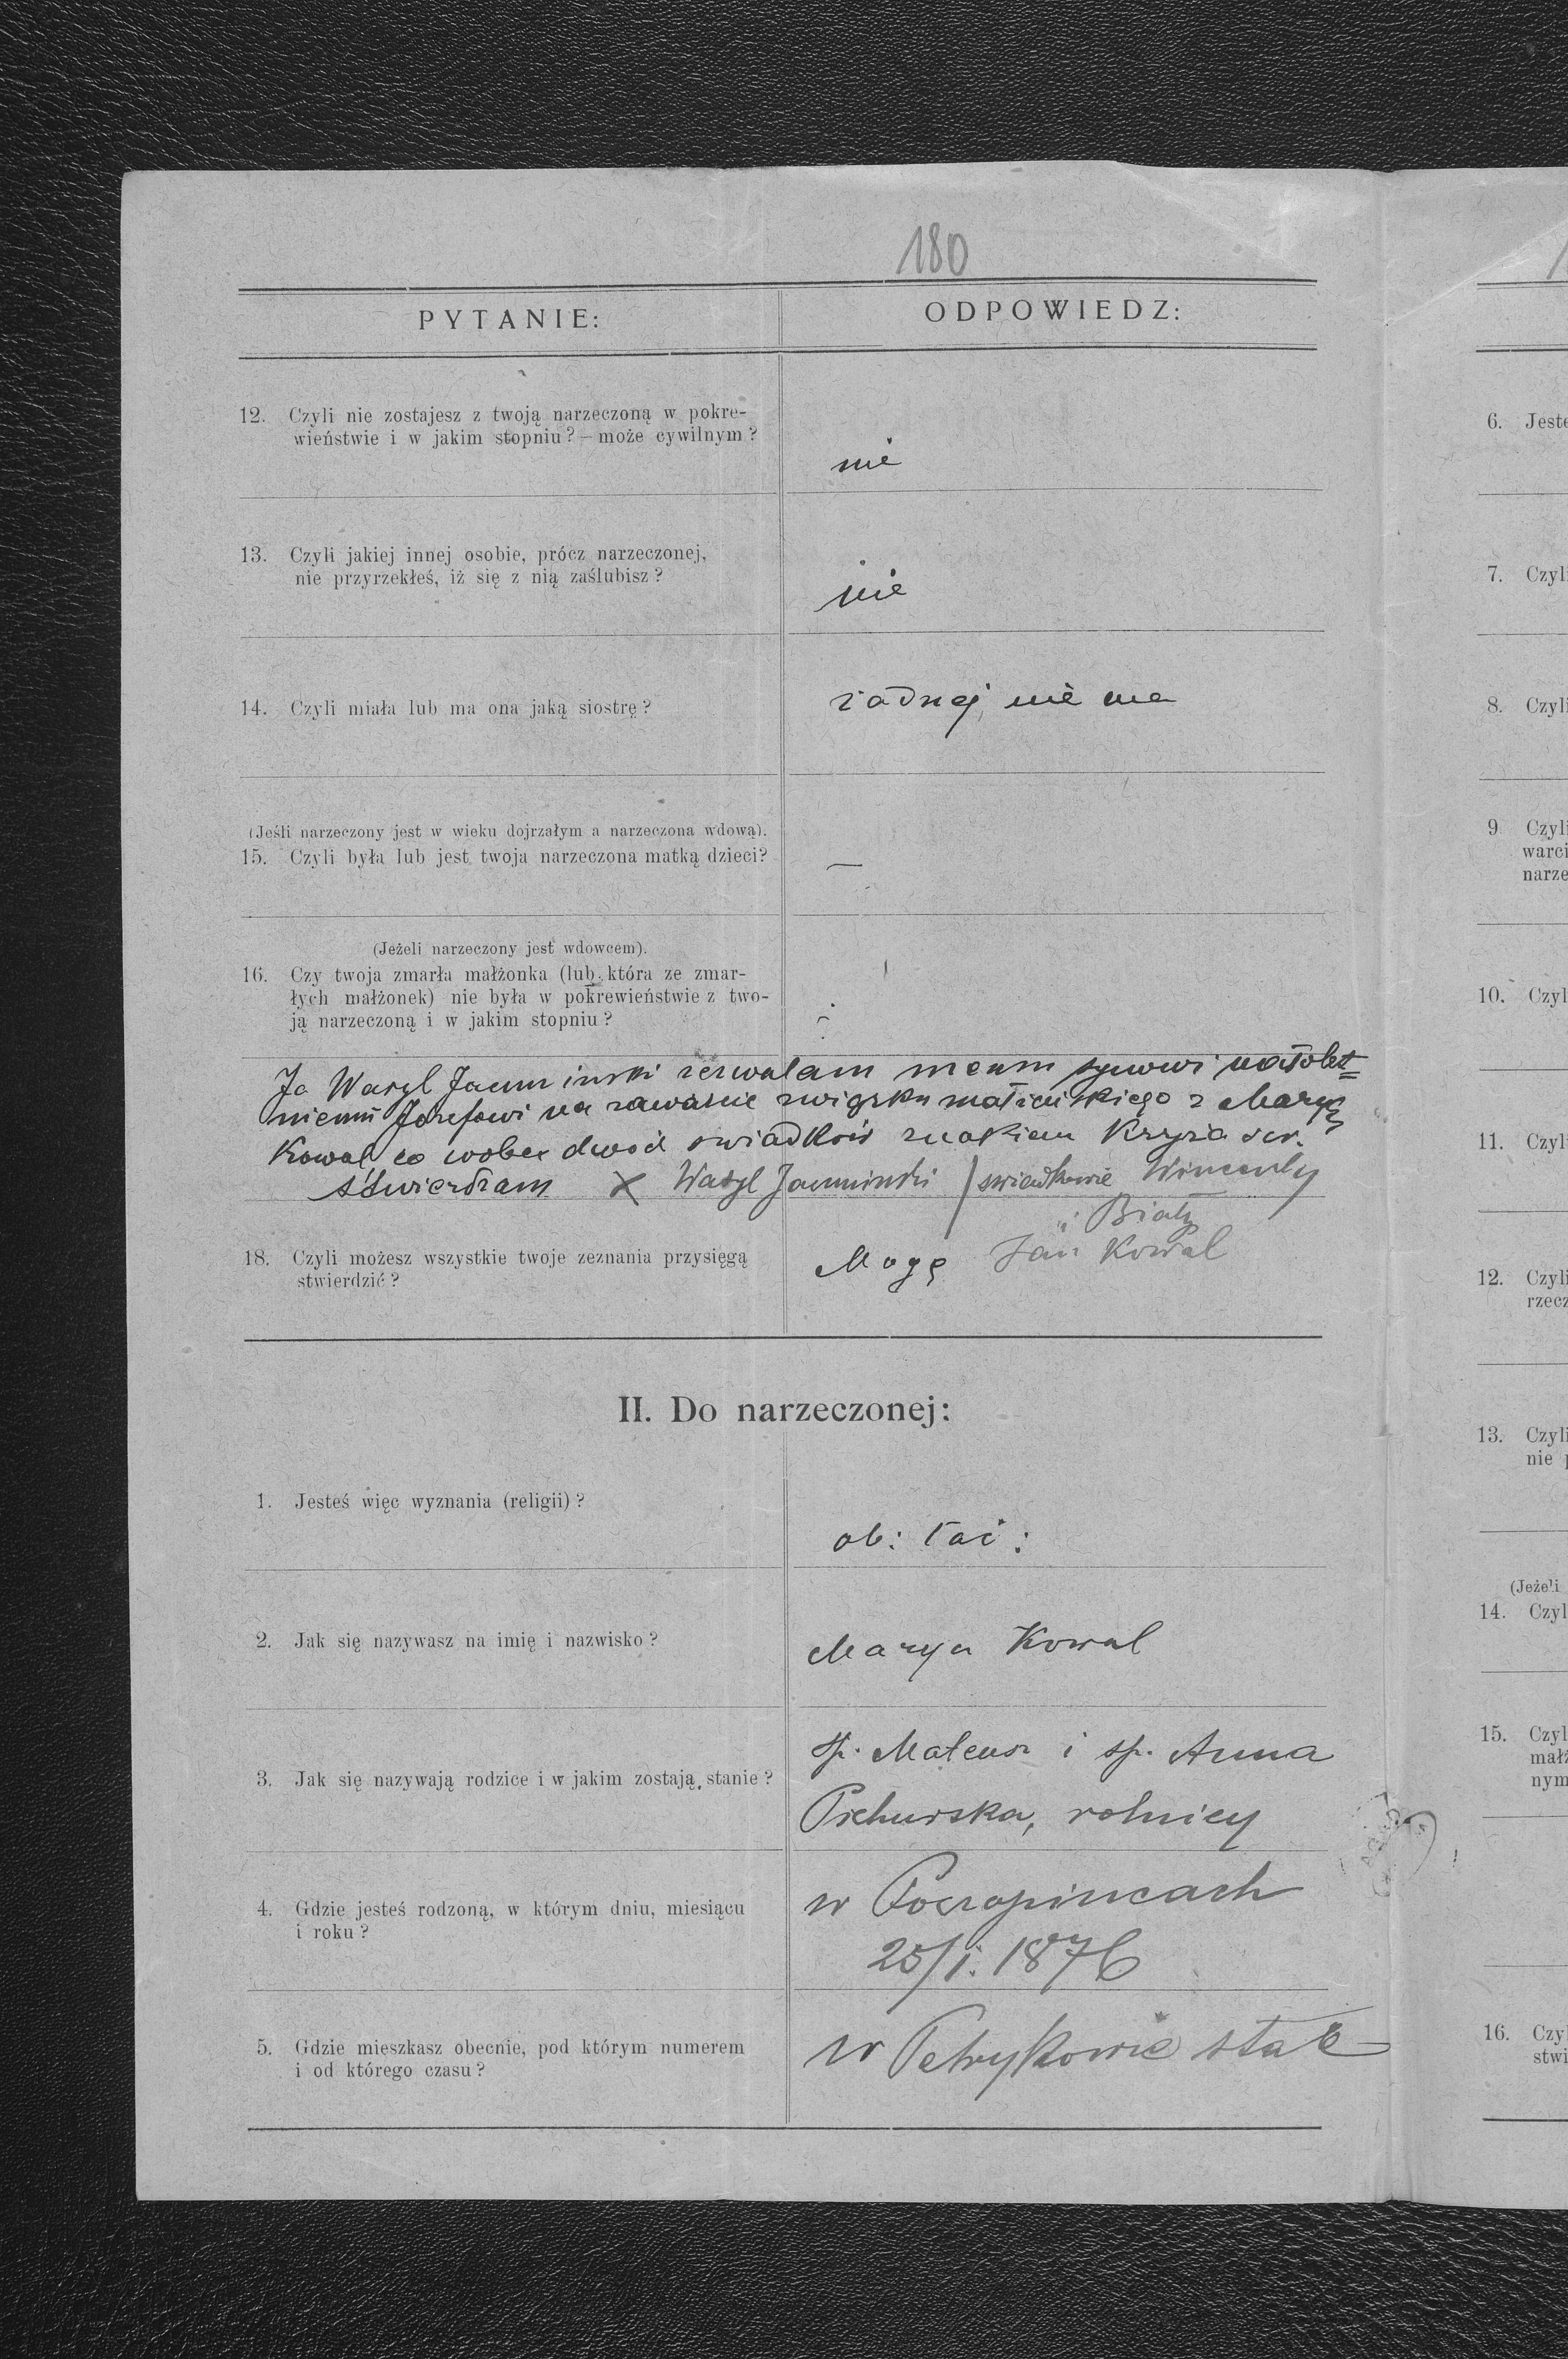 180
PYTANIE:
ODPOWIEDZ:
12. Czyli nie zostajesz z twoją narzeczoną w pokre-
wieństwie i w jakim stopniu? — może cywilnym?
nie
13. Czyli jakiej innej osobie, prócz narzeczonej,
nie przyrzekłeś, iż się z nią zaślubisz?
nie
14. Czyli miała lub ma ona jaką siostrę?
żadnej nie ma
(Jeśli narzeczony jest w wieku dojrzałym a narzeczona wdową).
15. Czyli była lub jest twoja narzeczona matką dzieci?
—
(Jeżeli narzeczony jest wdowcem).
16. Czy twoja zmarła małżonka (lub która ze zmar-
łych małżonek) nie była w pokrewieństwie z two-
ją narzeczoną i w jakim stopniu?
Ja Wasyl zezwalam memu synowi małolet=
niemu Józefowi na zawarcie związku małżeńskiego z Maryą
Kowal, co wobec dwóch świadków znakiem krzyża św.
stwierdzam X Wasyl / świadkowie Wincenty
i Biały
Jan Kowal
18. Czyli możesz wszystkie twoje zeznania przysięgą
stwierdzić?
Mogę
II. Do narzeczonej:
1. Jesteś więc wyznania (religii)?
ob: łac:
2. Jak się nazywasz na imię i nazwisko?
Marya Kowal
3. Jak się nazywają rodzice i w jakim zostają stanie?
śp. Mateusz i śp. Anna
Pichurska, rolnicy
4. Gdzie jesteś rodzoną, w którym dniu, miesiącu
i roku?
w Poczapińcach
25/I. 1876
5. Gdzie mieszkasz obecnie, pod którym numerem
i od którego czasu?
w Petrykowie stale
6. Jeste
7. Czyl
8. Czyl
9 Czyl
warci
narze
10. Czyl
11. Czyl
12. Czyl
rzecz
13. Czyl
nie
(Jeżeli
14. Czyl
15. Czyl
małż
nym
16. Czy
stwi